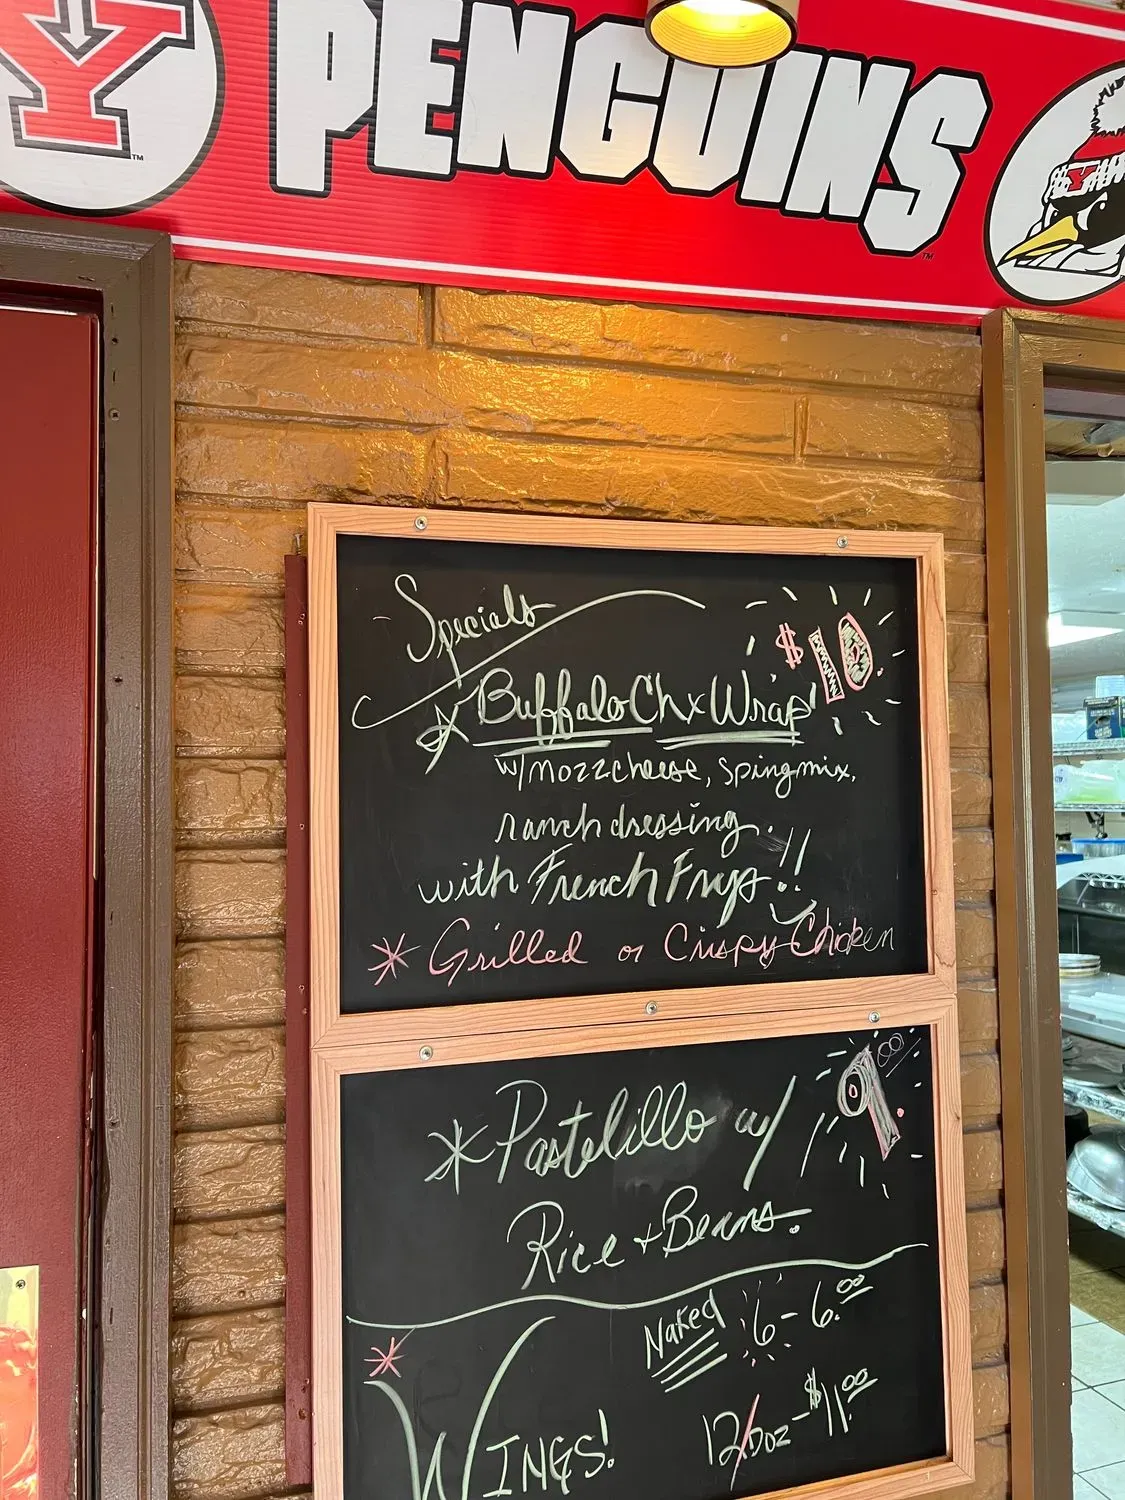 Y
TM
PENGUINS
TM
Y
Specials
$10.
* Buffalo Chx Wrap!
w/mozzcheese, spingmix,
ranch dressing.
with French Frys!!
* Grilled or Crispy Chicken
9.00
* Pastelillo w/
Rice + Beans.
Naked 6 - 6.00
* WINGS!
12/Doz - $11.00